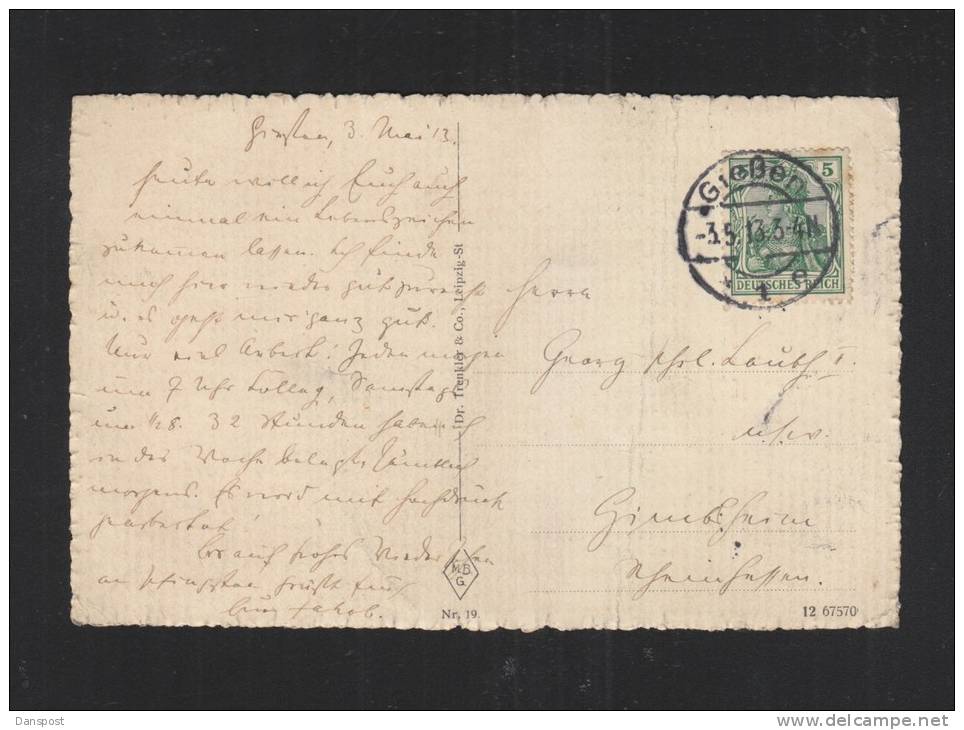 Giessen, 3. Mai 13.
Heute will ich Euch auch
einmal ein Lebenszeichen
zukommen lassen. Ich finde
mich hier wieder gut zurecht
u. es geht mir ganz gut.
Nur viel Arbeit! Jeden morgen
um 7 Uhr Colleg, Samstags
um 1/28. 32 Stunden habe ich
in der Woche belegt, sämtlich
morgens. Es wird mit Hochdruck
gearbeitet!
Bis auf frohes Wiedersehen
an Pfingsten grüßt Euch
Euer Jakob.
Dr. Trenkler & Co., Leipzig-St
M.B.
G.
Nr. 19.
Gießen
-3.5.13.3-4N
1
5
DEUTSCHES REICH
Herrn
Georg Phil. Lauth I.
usw.
Gimbsheim
Rheinhessen.
12 67570
Danspost
www.delcampe.net